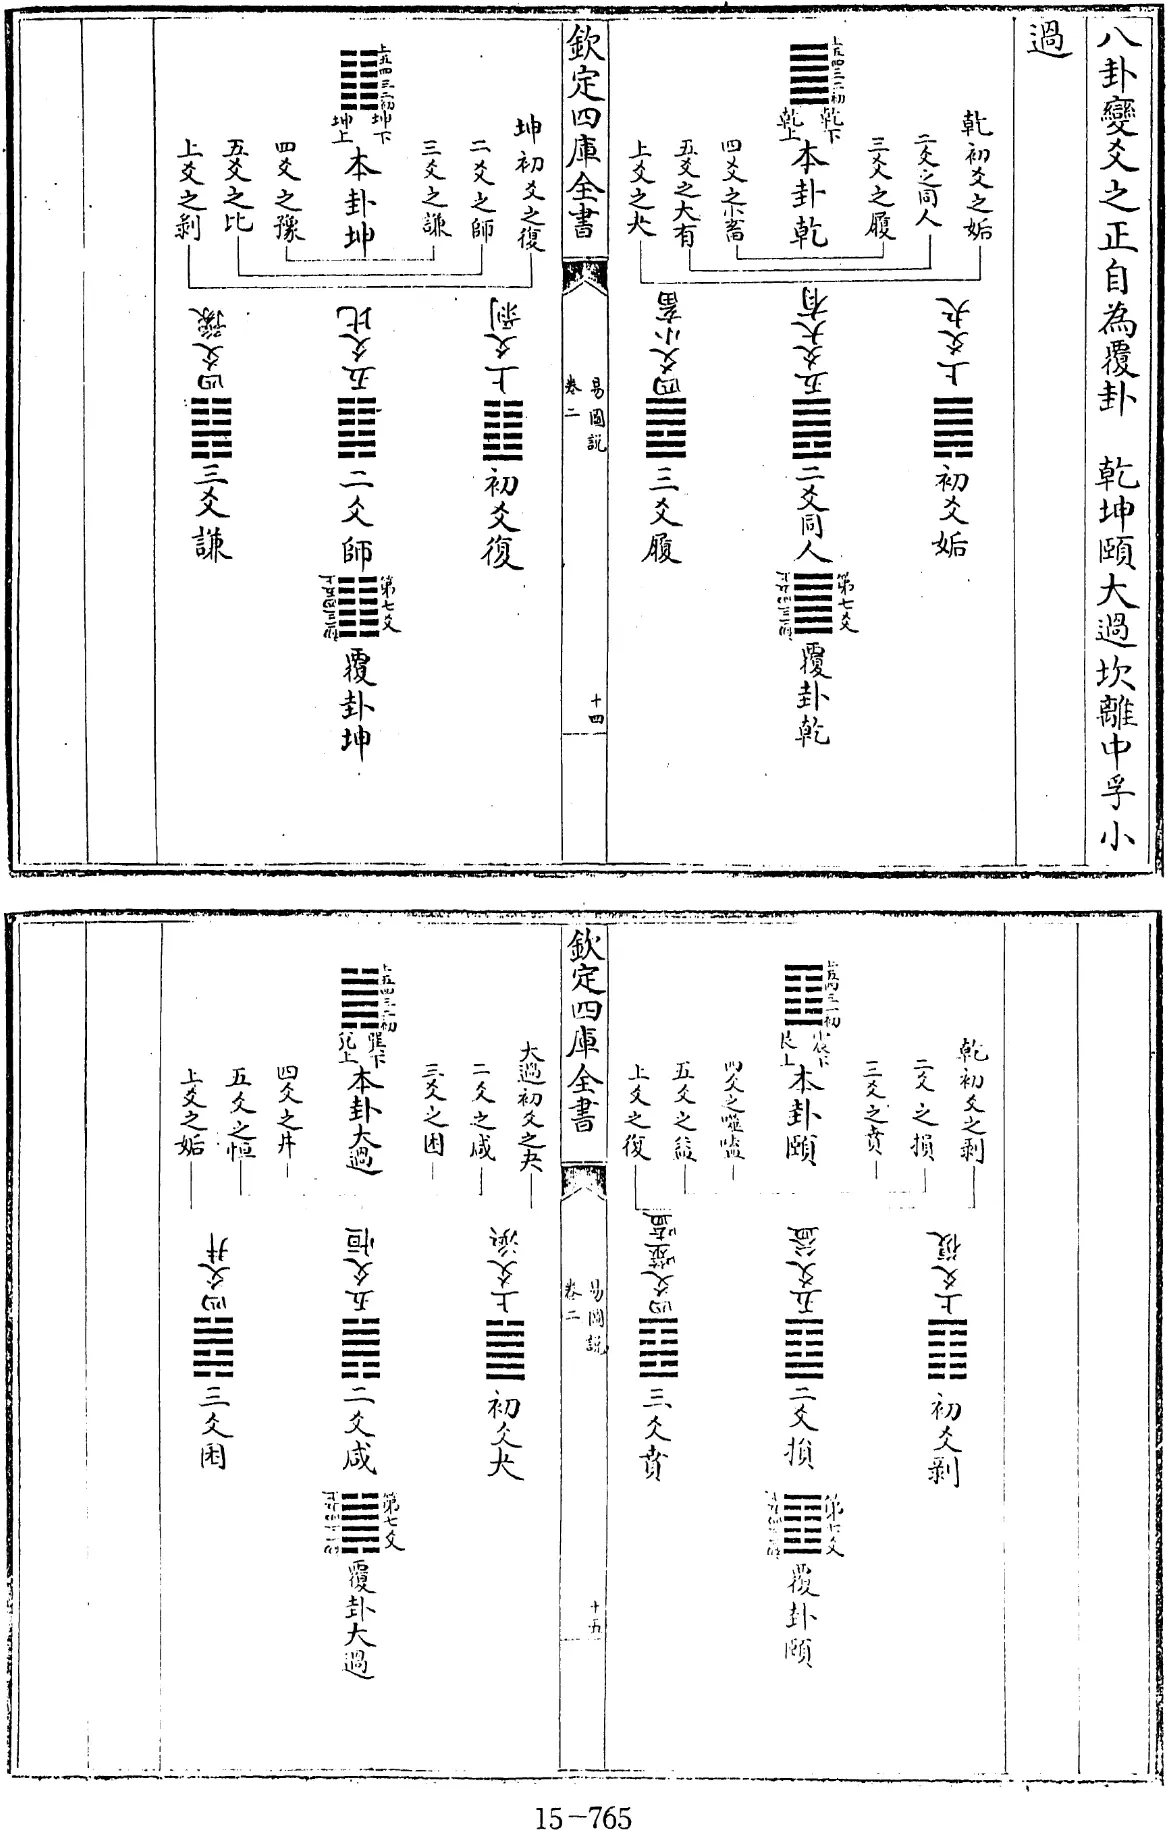 八卦變爻之正自為覆卦　乾坤頤大過坎離中孚小
過
上五四三二初
乾下
乾上
本卦乾
乾初爻之姤
二爻之同人
三爻之履
四爻之小畜
五爻之大有
上爻之夬
上爻夬
初爻姤
五爻大有
二爻同人
四爻小畜
三爻履
第七爻
上五四三二初
覆卦乾
欽定四庫全書
易圖說
卷二
十四
上五四三二初
坤下
坤上
本卦坤
坤初爻之復
二爻之師
三爻之謙
四爻之豫
五爻之比
上爻之剝
上爻剝
初爻復
五爻比
二爻師
四爻豫
三爻謙
第七爻
上五四三二初
覆卦坤
上五四三二初
震下
艮上
本卦頤
乾初爻之剝
二爻之損
三爻之賁
四爻之噬嗑
五爻之益
上爻之復
上爻復
初爻剝
五爻益
二爻損
四爻噬嗑
三爻賁
第七爻
覆卦頤
欽定四庫全書
易圖說
卷二
十五
上五四三二初
巽下
兌上
本卦大過
大過初爻之夬
二爻之咸
三爻之困
四爻之井
五爻之恒
上爻之姤
上爻
初爻夬
五爻恒
二爻咸
四爻井
三爻困
第七爻
覆卦大過
15-765